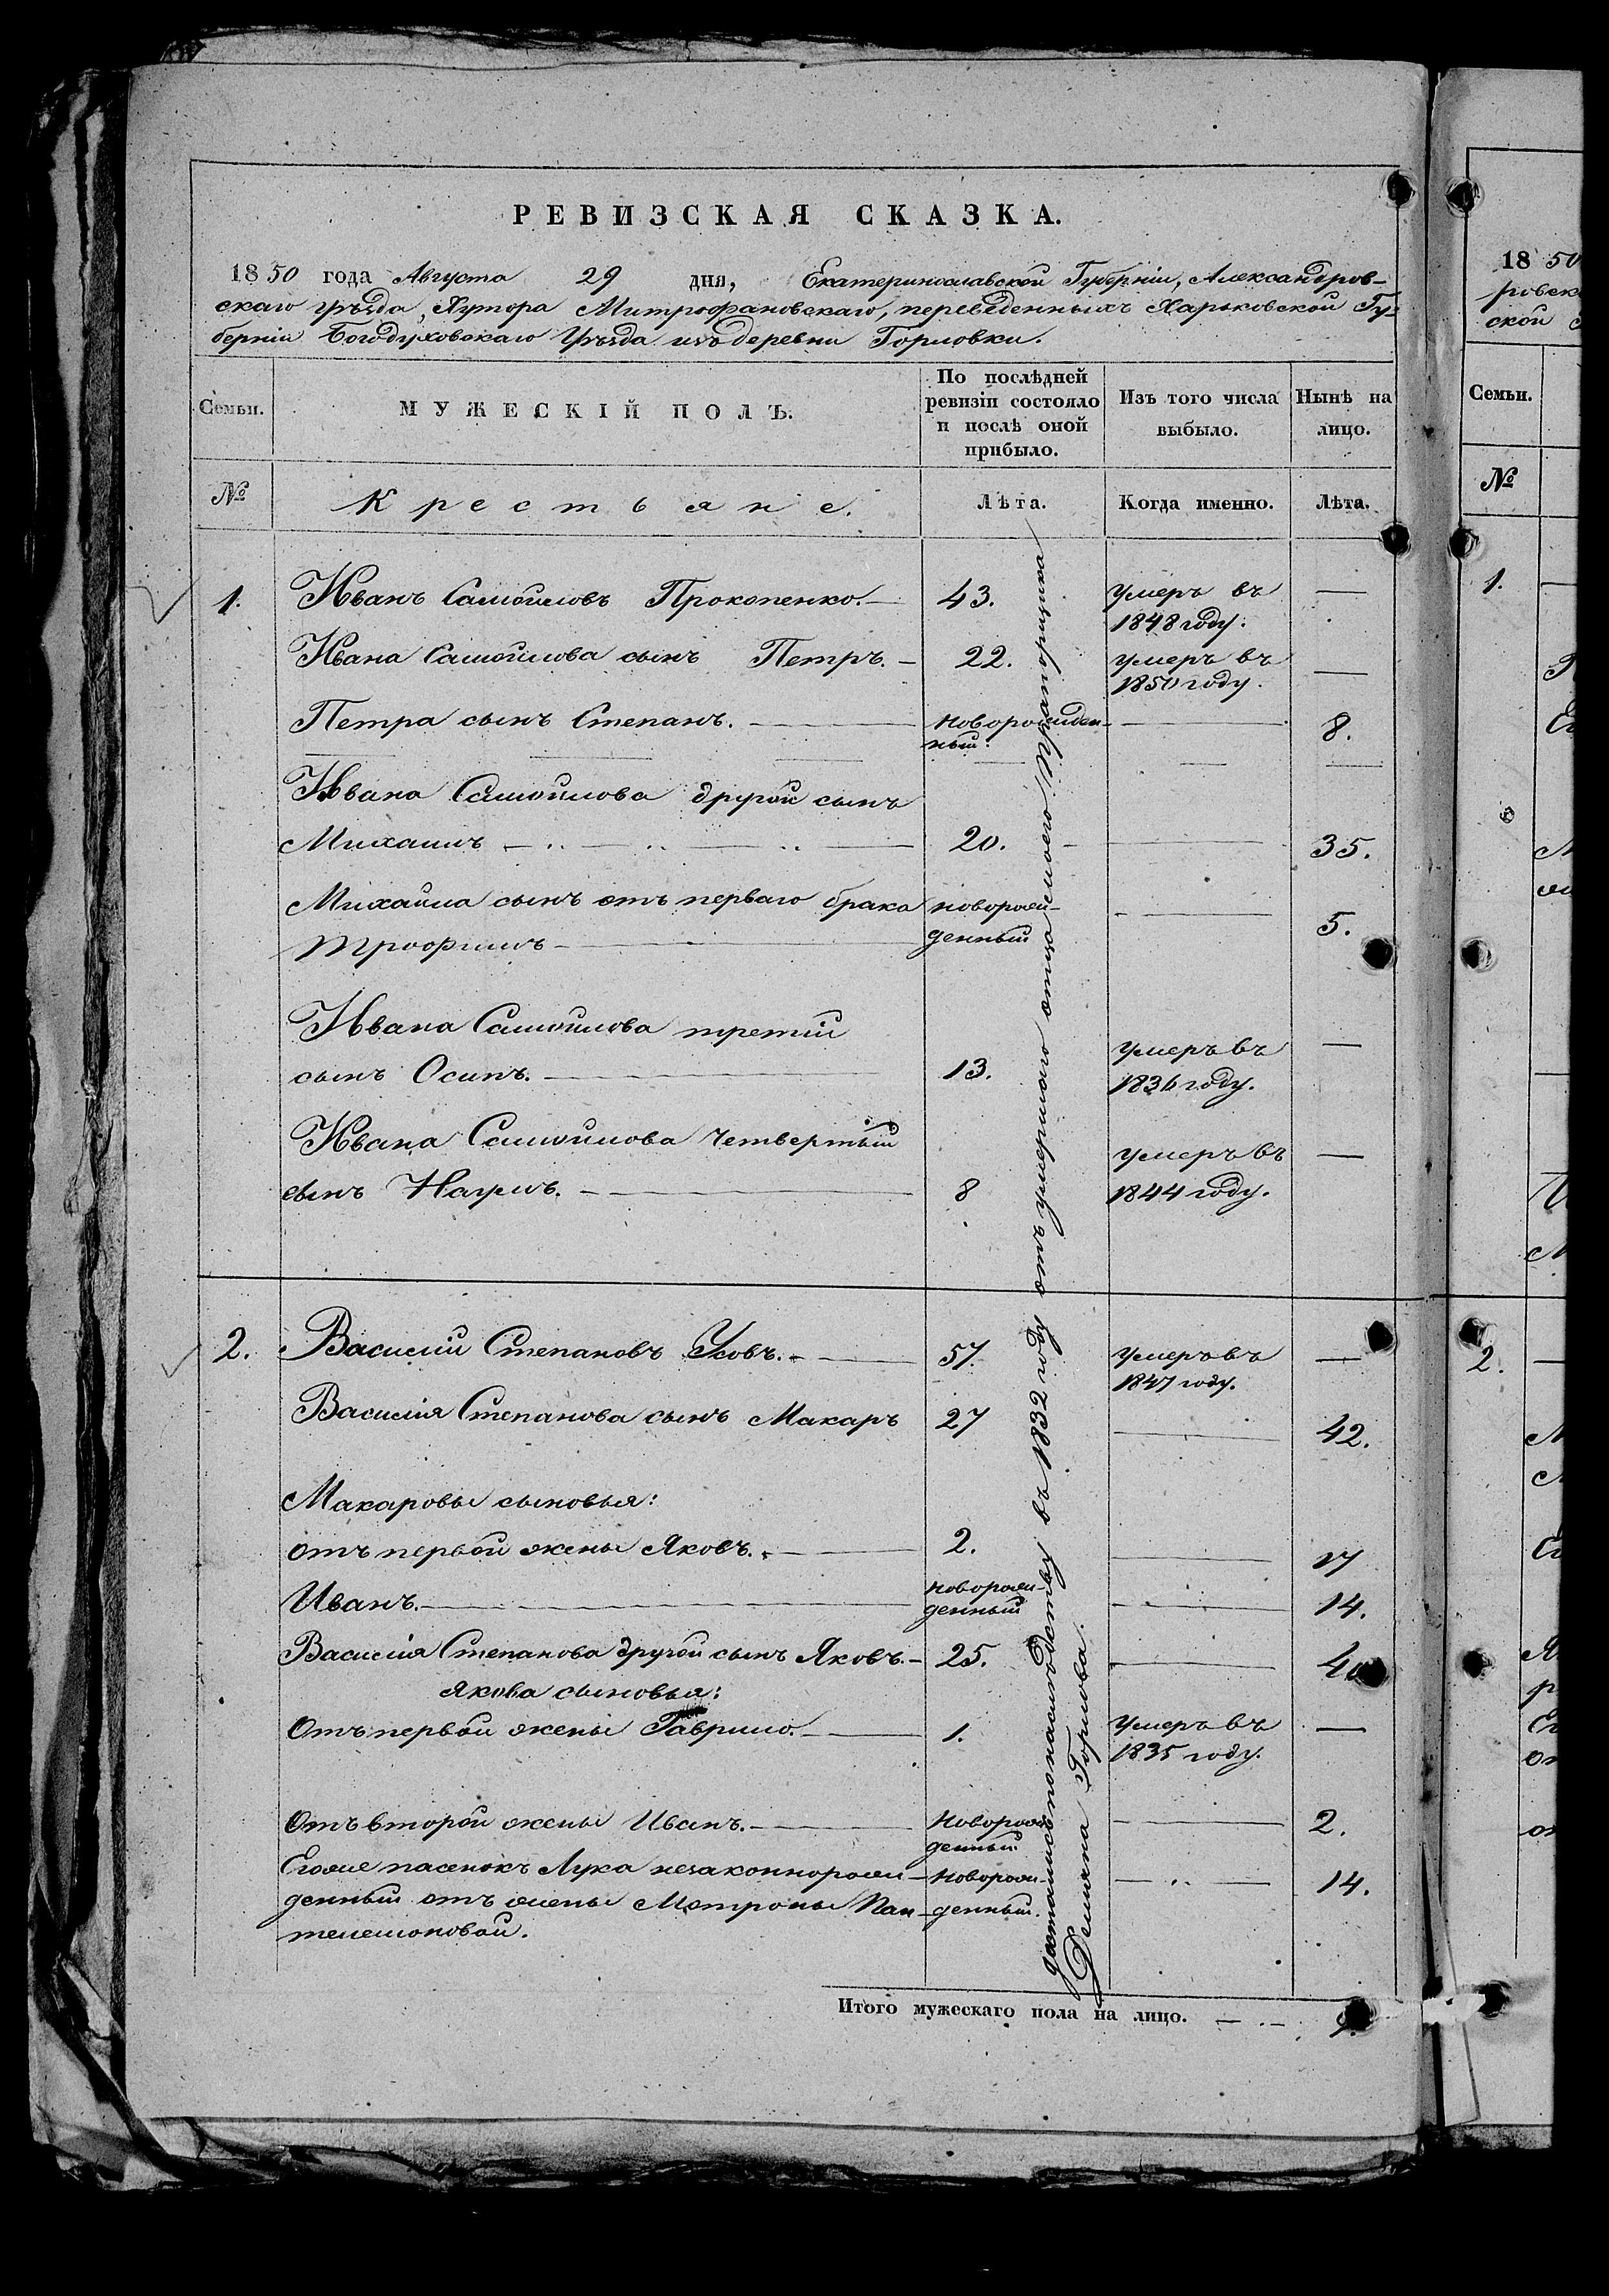 РЕВИЗСКАЯ СКАЗКА.
1850 года Августа 29 дня, Екатеринославской Губерніи, Александров-
скаго уѣзда, Хутора Митрофановскаго, переведенныхъ Харьковской Гу-
берніи Богодуховскаго Уѣзда изъ деревни Горловки.
Семьи. МУЖЕСКІЙ ПОЛЪ. По послѣдней ревизіи состояло и послѣ оной прибыло. Изъ того числа выбыло. Нынѣ на лицо.
№ Крестьяне. Лѣта. Когда именно. Лѣта.
1. Иванъ Самойловъ Прокопенко. — 43. умеръ въ 1848 году. —
Ивана Самойлова сынъ Петръ. — 22. умеръ въ 1850 году. —
Петра сынъ Степанъ. — новорожден-ный. — 8.
Ивана Самойлова другой сынъ
Михаилъ — 20. — 35.
Михаила сынъ отъ перваго брака новорож-
Трофимъ — денный — 5.
Ивана Самойлова третій
сынъ Осипъ. — 13. умеръ въ 1836 году. —
Ивана Самойлова четвертый
сынъ Наумъ. — 8 умеръ въ 1844 году. —
2. Василій Степановъ Уковъ. — 57. умеръ въ 1847 году. —
Василія Степанова сынъ Макаръ 27 — 42.
Макаровы сыновья:
отъ первой жены Яковъ. — 2. — 17
Иванъ. — новорож-денный — 14.
Василія Степанова другой сынъ Яковъ. — 25. — 40
Якова сыновья:
Отъ первой жены Гаврило. — 1. умеръ въ 1835 году. —
Отъ второй жены Иванъ. — новорож-денный — 2.
Егоже пасенокъ Лука незаконнорож- новорож- — 14.
денный отъ жены Мотроны Пан- денный.
телемоновой.
достались по наслѣдству въ 1832 году отъ умершаго отца моего Прапорщика
Демьяна Горлова.
Итого мужескаго пола на лицо. — 9.
18 50
ровск
ской
Семьи.
№
1.
2.